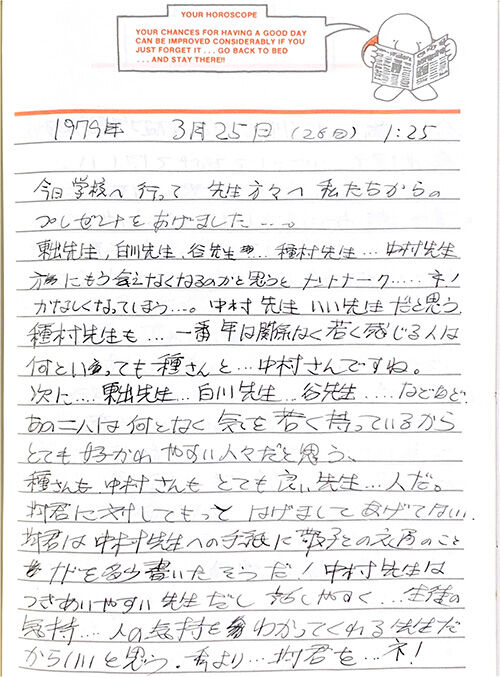 YOUR HOROSCOPE
YOUR CHANCES FOR HAVING A GOOD DAY
CAN BE IMPROVED CONSIDERABLY IF YOU
JUST FORGET IT... GO BACK TO BED
...AND STAY THERE!!
1979年 3月25日 (26日) 1:25
今日学校へ行って 先生方々へ 私たちからの
プレゼントをあげました‥‥。
東出先生、白川先生、谷先生‥ 種村先生…中村先生
方にもう会えなくなるのかと思うと ‥‥ネ!
かなしくなってしまう…。中村先生いい先生だと思う。
種村先生も… 一番年は関係なく若く感じる人は
何といっても種さんと…中村さんですね。
次に….東出先生…白川先生…谷先生‥‥などなど
あの二人は何となく気を若く持っているから
とても好かれやすい人々だと思う、
種さんも、中村さんもとても良い先生…人だ。
君に対してもっとはげましてあげてない、
君は中村先生への手紙に 子との のこと
を多少書いたそうだ!中村先生は
つきあいやすい先生だし 話しやすく…生徒の
気持…人の気持をわかってくれる先生だ
からいいと思う。私より… 君を…ネ!